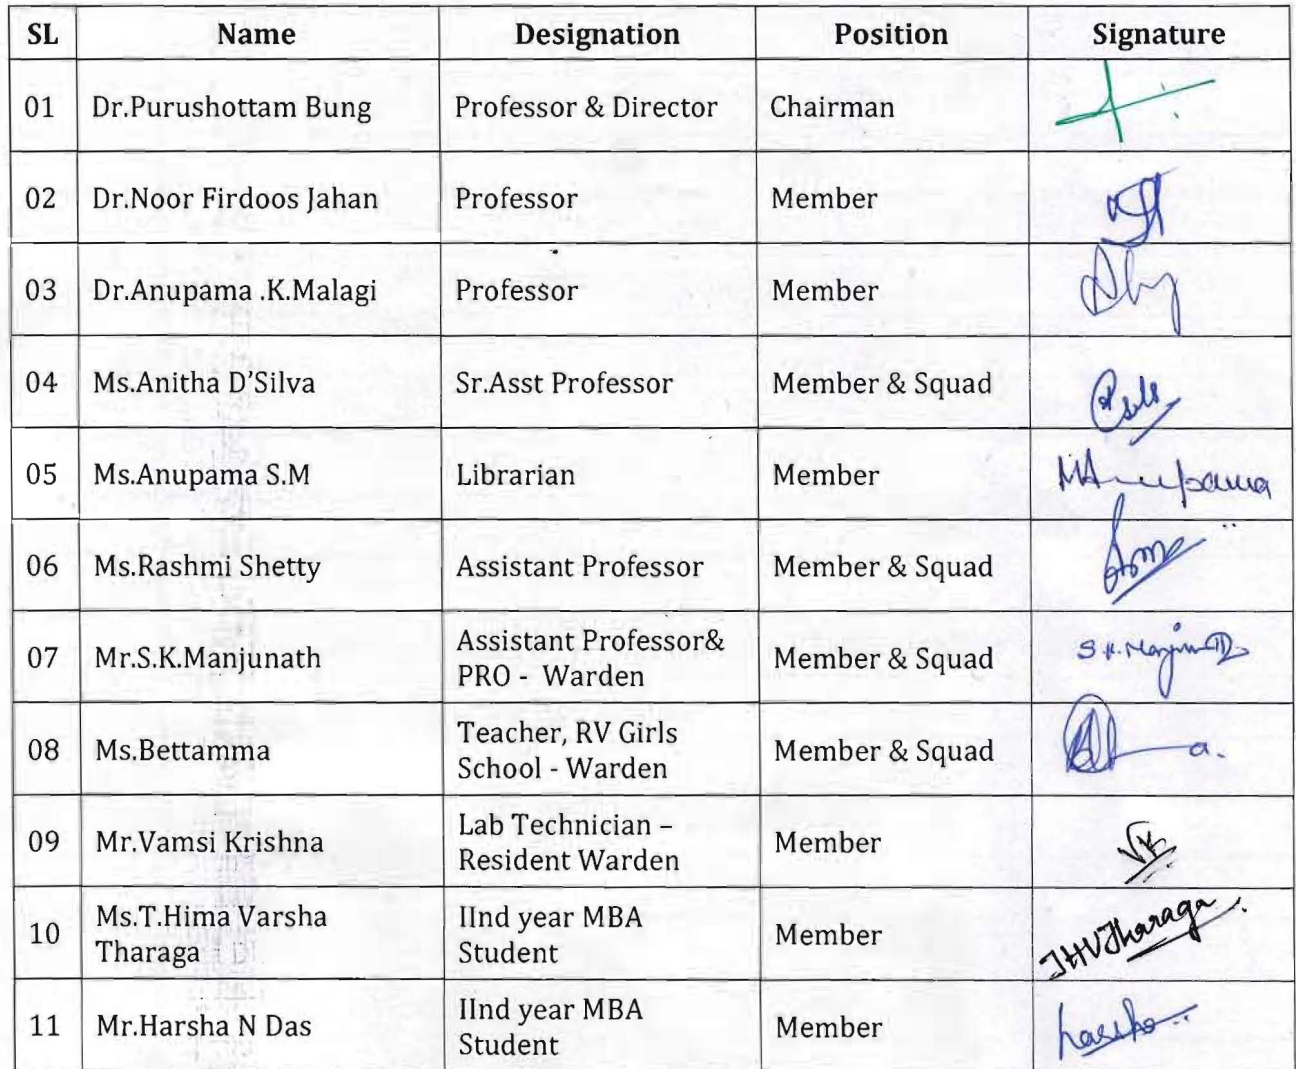 SL Name Designation Position Signature
01 Dr.Purushottam Bung Professor & Director Chairman
02 Dr.Noor Firdoos Jahan Professor Member
03 Dr.Anupama .K.Malagi Professor Member
04 Ms.Anitha D'Silva Sr.Asst Professor Member & Squad
05 Ms.Anupama S.M Librarian Member MAnupama
06 Ms.Rashmi Shetty Assistant Professor Member & Squad
07 Mr.S.K.Manjunath Assistant Professor& Member & Squad S.K.Manjunath
PRO - Warden
08 Ms.Bettamma Teacher, RV Girls Member & Squad
School - Warden
09 Mr.Vamsi Krishna Lab Technician – Member VK
Resident Warden
10 Ms.T.Hima Varsha IInd year MBA Member THVTharaga
Tharaga Student
11 Mr.Harsha N Das IInd year MBA Member Harsha
Student